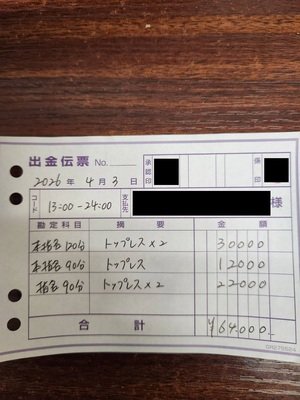 出金伝票 No. 承認印 係印
2026年 4月 3日
コード 13:00-24:00 支払先 様
勘定科目 摘要 金額
本指名120分 トップレス×2 30000
本指名90分 トップレス 12000
指名90分 トップレス×2 22000
合計 ¥64,000-